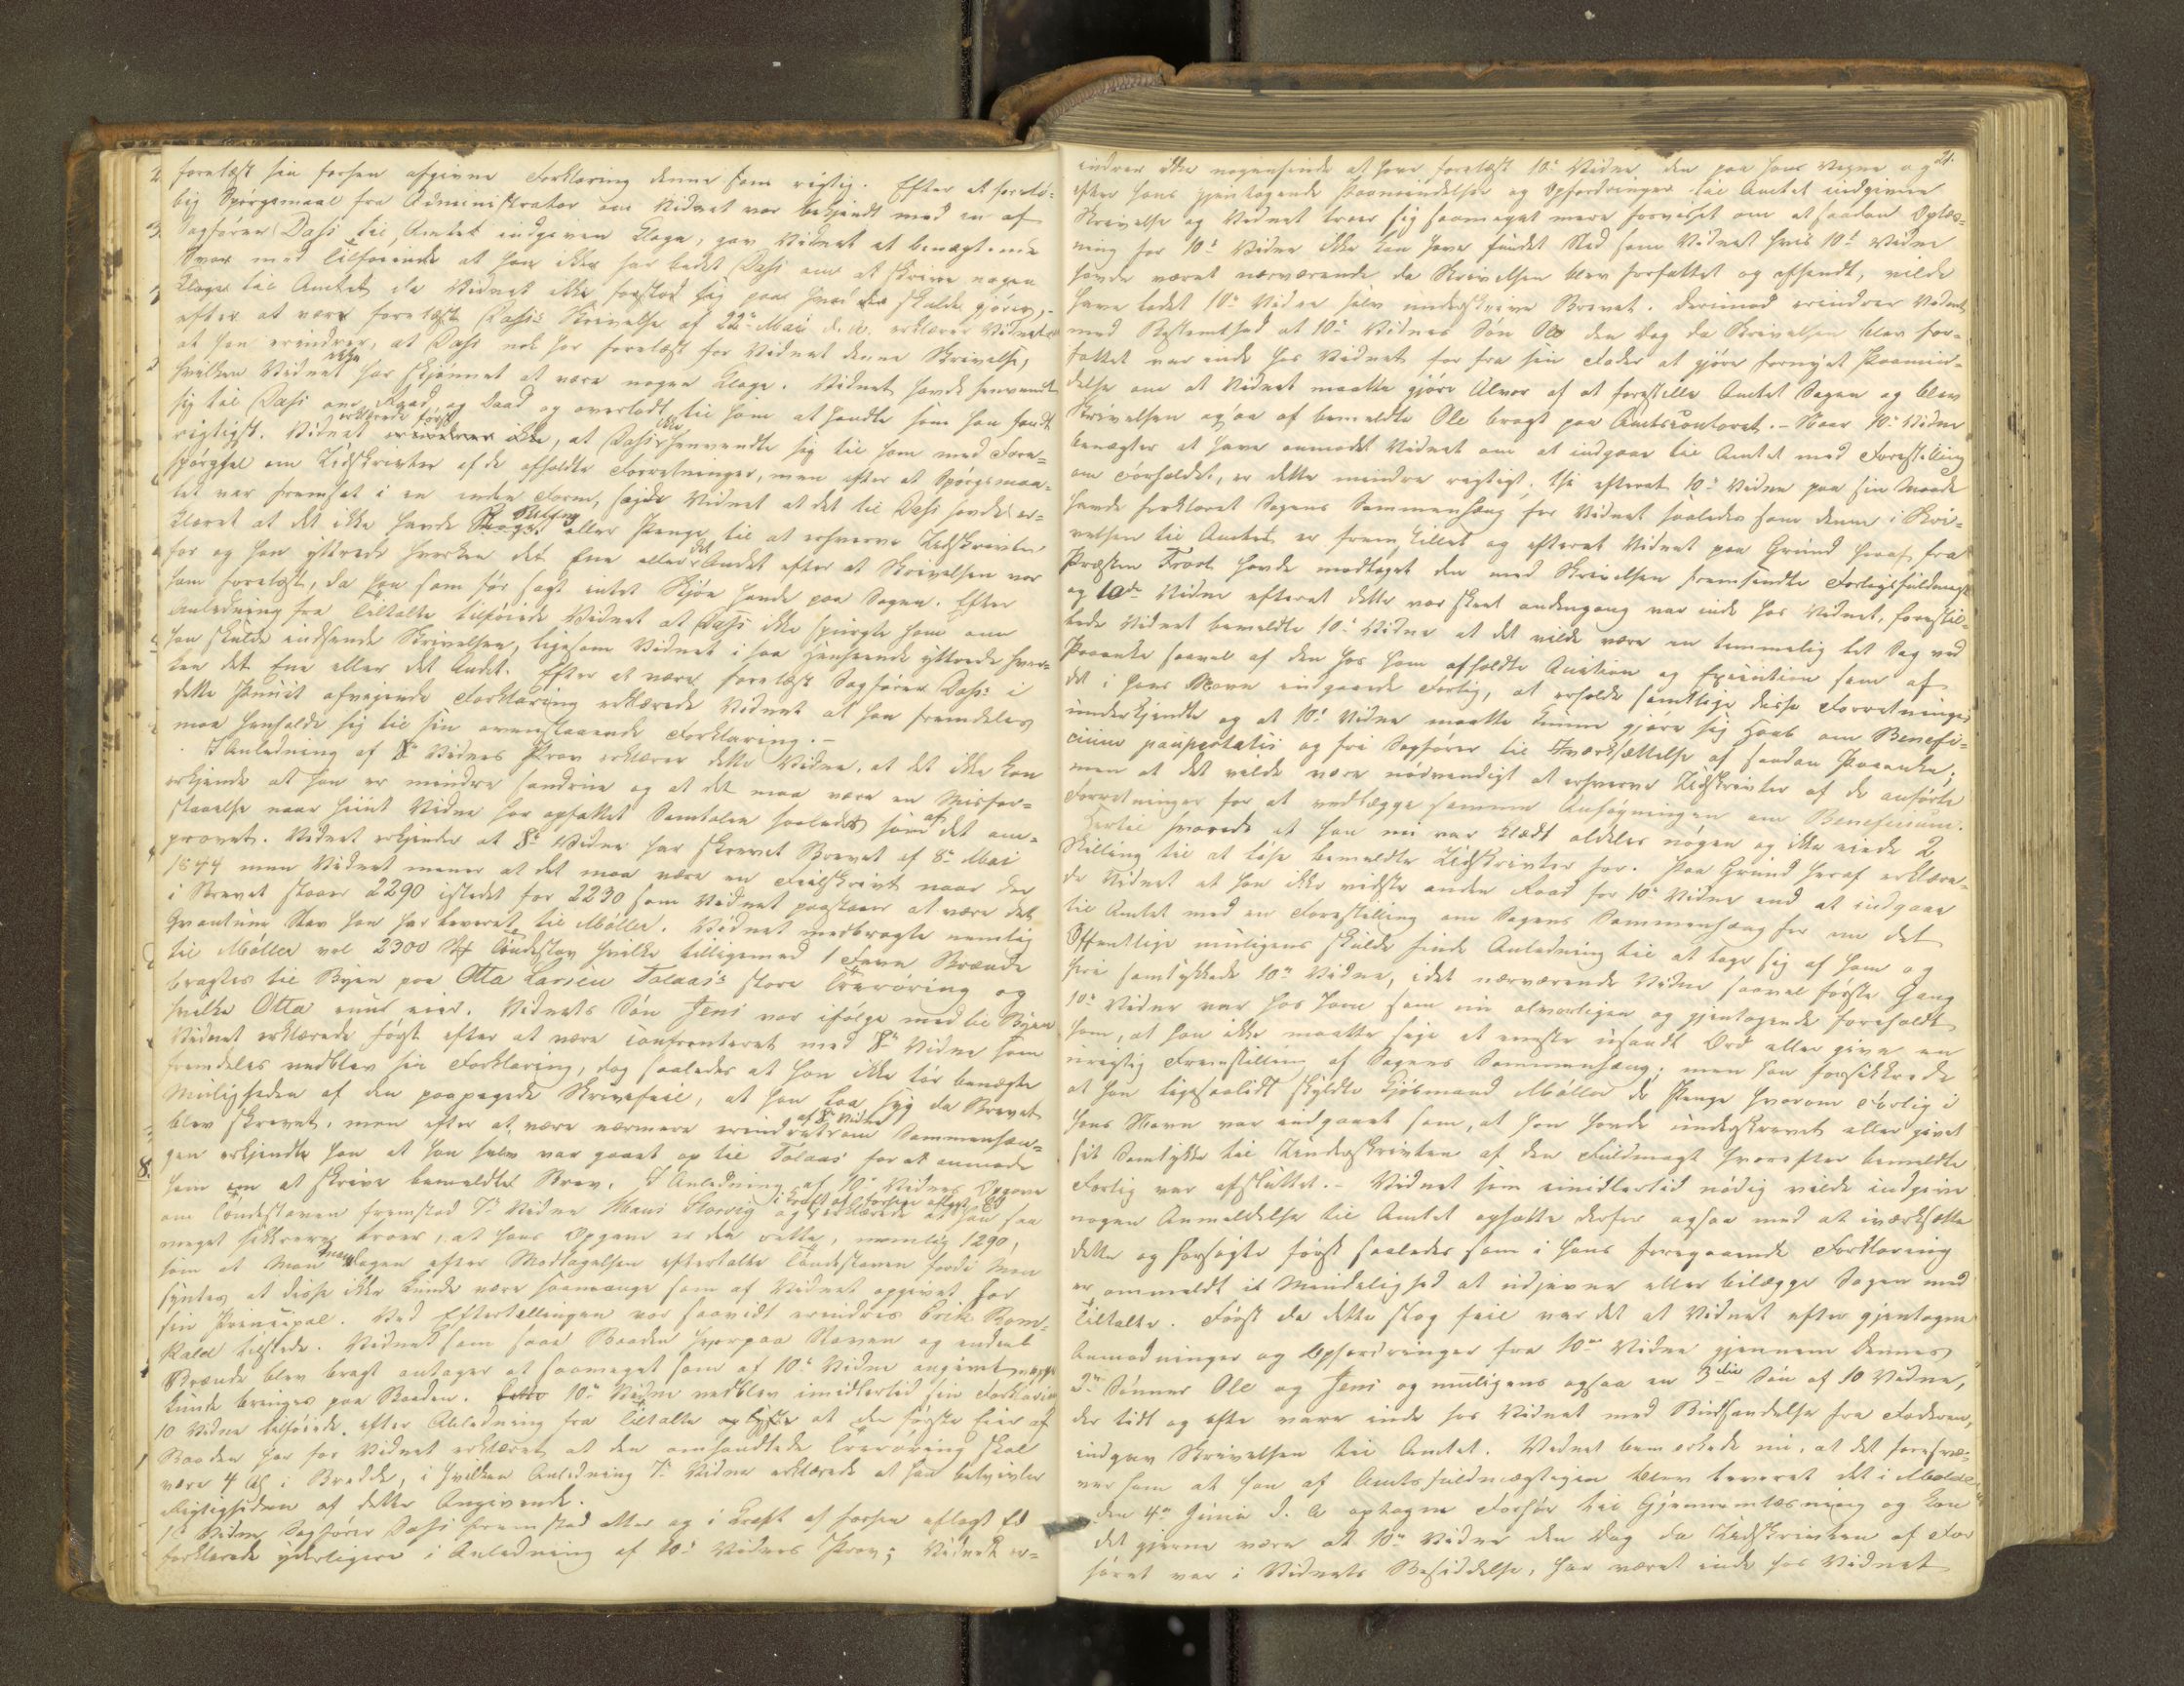 forelæst sin forhen afgivne Forklaring denne som rigtig. Efter et forelø-
big Spørgsmaal fra Administrator om Vidnet var bekjendt med en af
Sagfører Dahl til Amtet indgiven Klage, gav Vidnet et benægtende
Svar med Tilføiende at han ikke har bedet Dahl om at skrive nogen
Klage til Amtet da Vidnet ikke forstod sig paa hvad der skulde gjøres,-
efter at være forelæst Dahls Skrivelse af 22de Mai d. A. erklærer Vidnet
at han erindrer, at Dahl nok har forelæst for Vidnet denne Skrivelse,
hvilken Vidnet ikke har skjønnet at være nogen Klage. Vidnet havde henvendt
sig til Dahl om Raad og Daad og overlodt til ham at handle som han fandt
rigtigst. Vidnet erklærede først, at Dahl ikke henvendte sig til ham med Fore-
spørgsel om Udskrivter af de afholdte Forretninger, men efter at Spørgsmaa-
let var fremsat i en anden Form, sagde Vidnet at det til Dahl havde er-
klæret at det ikke havde eller Penge til at erhverve Udskrivter
for og han yttrede hverken det Ene eller det Andet efter at Skrivelsen var
ham forelæst, da han som før sagt intet Skjøn havde paa Sagen. Efter
Anledning fra Tiltalte tilføiede Vidnet at Dahl ikke spurgte ham om
han skulde indsende Skrivelsen, ligesom Vidnet i saa Henseende yttrede hver-
ken det Ene eller det Andet. Efter at være forelæst Sagfører Dahls i
dette Punct afvigende Forklaring erklærede Vidnet at han fremdeles
maa henholde sig til sin ovenstaaende Forklaring.-
I Anledning af 8de Vidnes Prov erklærer dette Vidne, at det ikke kan
erkjende at han er mindre sandru og at det maa være en Misfor-
staaelse naar hiint Vidne har opfattet Samtalen saaledes som af det om-
provet. Vidnet erkjender at 8de Vidne har skrevet Brevet af 8de Mai
1844 men Vidnet mener at det maa være en Feilskrivt naar der
i Brevet staaer 2290 istedet for 2230 som Vidnet paastaaer at være det
Qvantum Stav han har leveret til Møller. Vidnet medbragte nemlig
til Møller vel 2300 Tøndestav hvilke tilligemed 1 Favn Brænde
bragtes til Byen paa Otta Larsen Tolaas's store Trærøring og
hvilke Otta nu eier. Vidnets Søn Jens var ifølge med til Byen
Vidnet erklærede først efter at være confronteret med 8de Vidne som
fremdeles vedblev sin Forklaring, dog saaledes at han ikke tør benægte
Muligheden af den paapegede Skrivefeil, at han laa syg da Brevet
blev skrevet, men efter at være nærmere erindret af 8de Vidne om Sammenhæn-
gen erkjendte han at han selv var gaaet op til Tolaas for at anmode
ham om at skrive bemeldte Brev. I Anledning af 10de Vidnes Opgave
om Tøndestaven fremstod 7de Vidne Hans Storvig og i Kraft af forhen aflagt Ed erklærede at han saa
meget sikkrere troer, at hans Opgave er den rette, nemlig 1290,
som at Man Dagen efter Modtagelsen eftertalte Tøndestaven fordi Man
syntes at disse ikke kunde være saamange som af Vidnet opgivet for
sin Principal. Ved Eftertællingen var saavidt erindres Erik Rom-
stad tilstede. Vidnet som saae Baaden hvorpaa Staven og andet
Brænde blev bragt antager at saameget som af 10de Vidne angivet
kunde bringes paa Baaden. 10de Vidne vedblev imidlertid sin Forklaring
10 Vidne tilføiede, efter Anledning fra Tiltalte at den første Eier af
Baaden har for Vidnet erklæret at den omhandlede Trærøring skal
være 4 Al i Bredde, i hvilken Anledning 7de Vidne erklærede at han betvivler
Rigtigheden af dette Angivende.
1ste Vidne Sagfører Dahl fremstod atter og i Kraft af forhen aflagt Ed
forklarede yderligere i Anledning af 10de Vidnes Prov; Vidnet er-
21.
indrer ikke nogensinde at have forelæst 10de Vidne den paa hans Vegne og
efter hans gjentagende Paamindelser og Opfordringer til Amtet indgivne
Skrivelse og Vidnet troer sig saameget mere forvisset om at saadan Oplæs-
ning for 10de Vidne ikke kan have fundet Sted som Vidnet hvis 10de Vidne
havde været nærværende da Skrivelsen blev forfattet og afsendt, vilde
have ladet 10de Vidne selv underskrive Brevet. Derimod erindrer Vidnet
med Bestemthed at 10de Vidnes Søn Ole den Dag da Skrivelsen blev for-
fattet var inde hos Vidnet for fra sin Fader at gjøre fornyet Paamin-
delse om at Vidnet maatte gjøre Alvor af at forestille Amtet Sagen og blev
Skrivelsen ogsaa af bemeldte Ole bragt paa Amtscontoret.- Naar 10de Vidne
benægter at have anmodet Vidnet om at indgaae til Amtet med Forestilling
om Forholdet, er dette mindre rigtigt, thi efterat 10de Vidne paa sin Maade
havde forklaret Sagens Sammenhæng for Vidnet saaledes som denne i Skri-
velsen til Amtet er fremstillet og efterat Vidnet paa Grund heraf fra
Præsten Frost havde modtaget den med Skrivelsen fremsendte Forligsfuldmagt
og 10de Vidne efterat dette var skeet andengang var inde hos Vidnet, forestil-
lede Vidnet bemeldte 10de Vidne at det vilde være en temmelig let Sag ved
Paaanke saavel af den hos ham afholdte Auction og Execution som af
det i hans Navn indgaaede Forlig, at erholde samtlige disse Forretninger
underkjendte og at 10de Vidne maatte kunne gjøre sig Haab om Benefi-
cium paupertatis og fri Sagfører til Iværksættelse af saadan Paaanke;
men at det vilde være nødvendigt at erhverve Udskrivter af de anførte
Forretninger for at vedlægge samme Ansøgningen om Beneficium.
Hertil svarede at han nu var klædt aldeles nøgen og ikke eiede 2
Skilling til at løse bemeldte Udskrivter for. Paa Grund heraf erklære-
de Vidnet at han ikke vidste anden Raad for 10de Vidne end at indgaae
til Amtet med en Forestilling om Sagens Sammenhæng for om det
Offentlige muligens skulde finde Anledning til at tage sig af ham og
heri samtykkede 10de Vidne, idet nærværende Vidne saavel første Gang
10de Vidne var hos ham som nu alvorligen og gjentagende foreholdt
ham, at han ikke maatte sige et eneste usandt Ord eller give en
urigtig Fremstilling af Sagens Sammenhæng; men han forsikkrede
at han ligesaalidt skyldte Kjøbmand Møller de Penge hvorom Forlig i
hans Navn var indgaaet som, at han havde underskrevet eller givet
sit Samtykke til Underskrivten af den Fuldmagt hvorefter bemeldte
Forlig var afsluttet.- Vidnet som imidlertid nødig vilde indgive
nogen Anmeldelse til Amtet opsatte derfor ogsaa med at iværksætte
dette og forsøgte først saaledes som i hans foregaaende Forklaring
er ommeldt i Mindelighed at udjevne eller bilægge Sagen med
Tiltalte. Først da dette slog feil var det at Vidnet efter gjentagne
Anmodninger og Opfordringer fra 10de Vidne gjennem Dennes
2de Sønner Ole og Jens og muligens ogsaa en 3die Søn af 10 Vidne,
der tidt og ofte vare inde hos Vidnet med Budsendelse fra Faderen,
indgav Skrivelsen til Amtet. Vidnet bemærkede nu, at det foresvæ-
ver ham at han af Amtsfuldmægtigen blev leveret det i Molde
den 4de Juni d. A optagne Forhør til Gjennemlæsning og kan
det gjerne være at 10de Vidne den Dag da Udskrivten af For
høret var i Vidnets Besiddelse, har været inde hos Vidnet